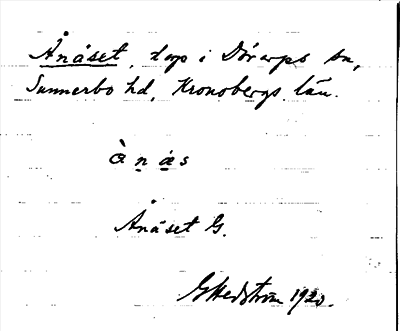 Ånäset, torp i Dörarps sn,
Sunnerbo hd, Kronobergs län.
ànás
Ånäset G.
G Hedström 192